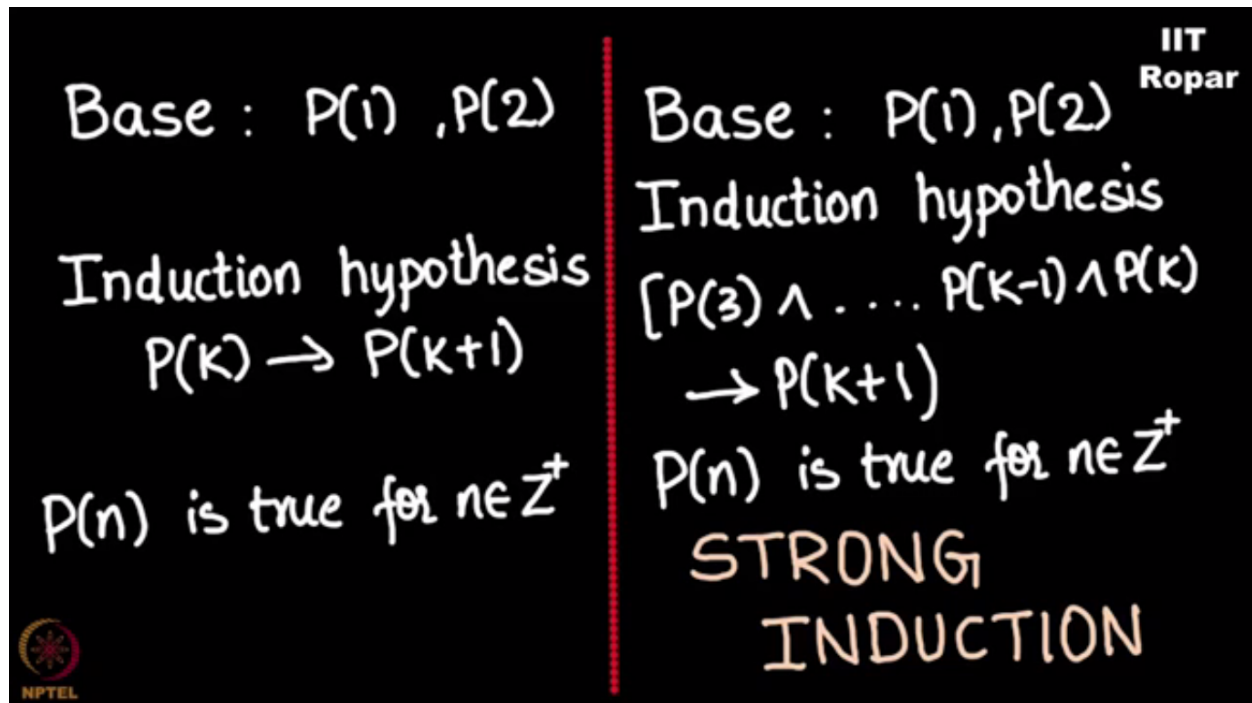 IIT
Ropar
Base : P(1) , P(2)
Induction hypothesis
P(K) → P(K+1)
P(n) is true for n∈Z⁺
Base : P(1), P(2)
Induction hypothesis
[P(3) ∧ . . . . P(K-1) ∧ P(K)
→ P(K+1)
P(n) is true for n∈Z⁺
STRONG
INDUCTION
NPTEL